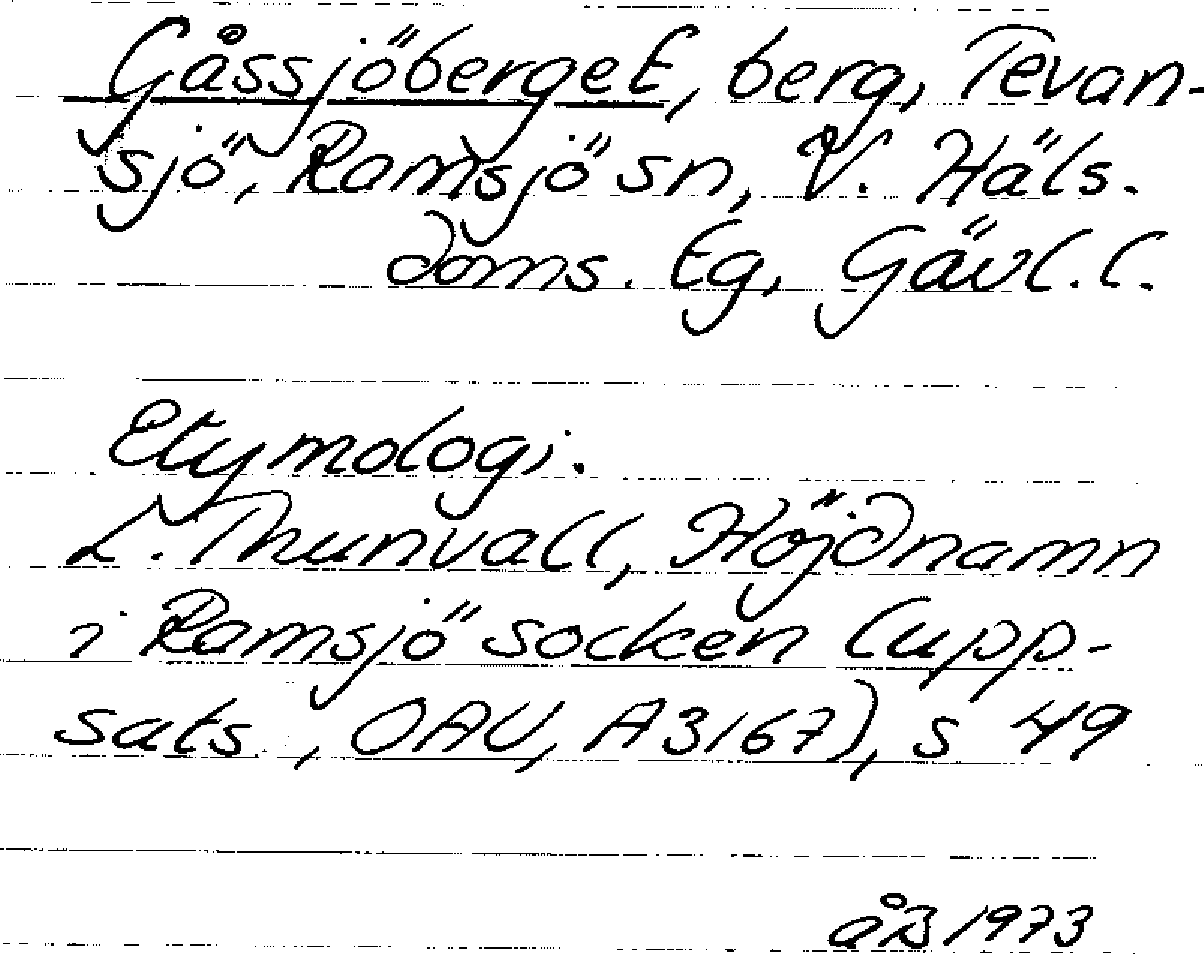 Gåssjöberget, berg, Tevan-
sjö, Ramsjö sn, V. Häls.
doms. tg, Gävl. l.
Etymologi.
L. Thunvall, Höjdnamn
i Ramsjö socken (upp-
sats, OAU, A3167), s 49
åB 1973